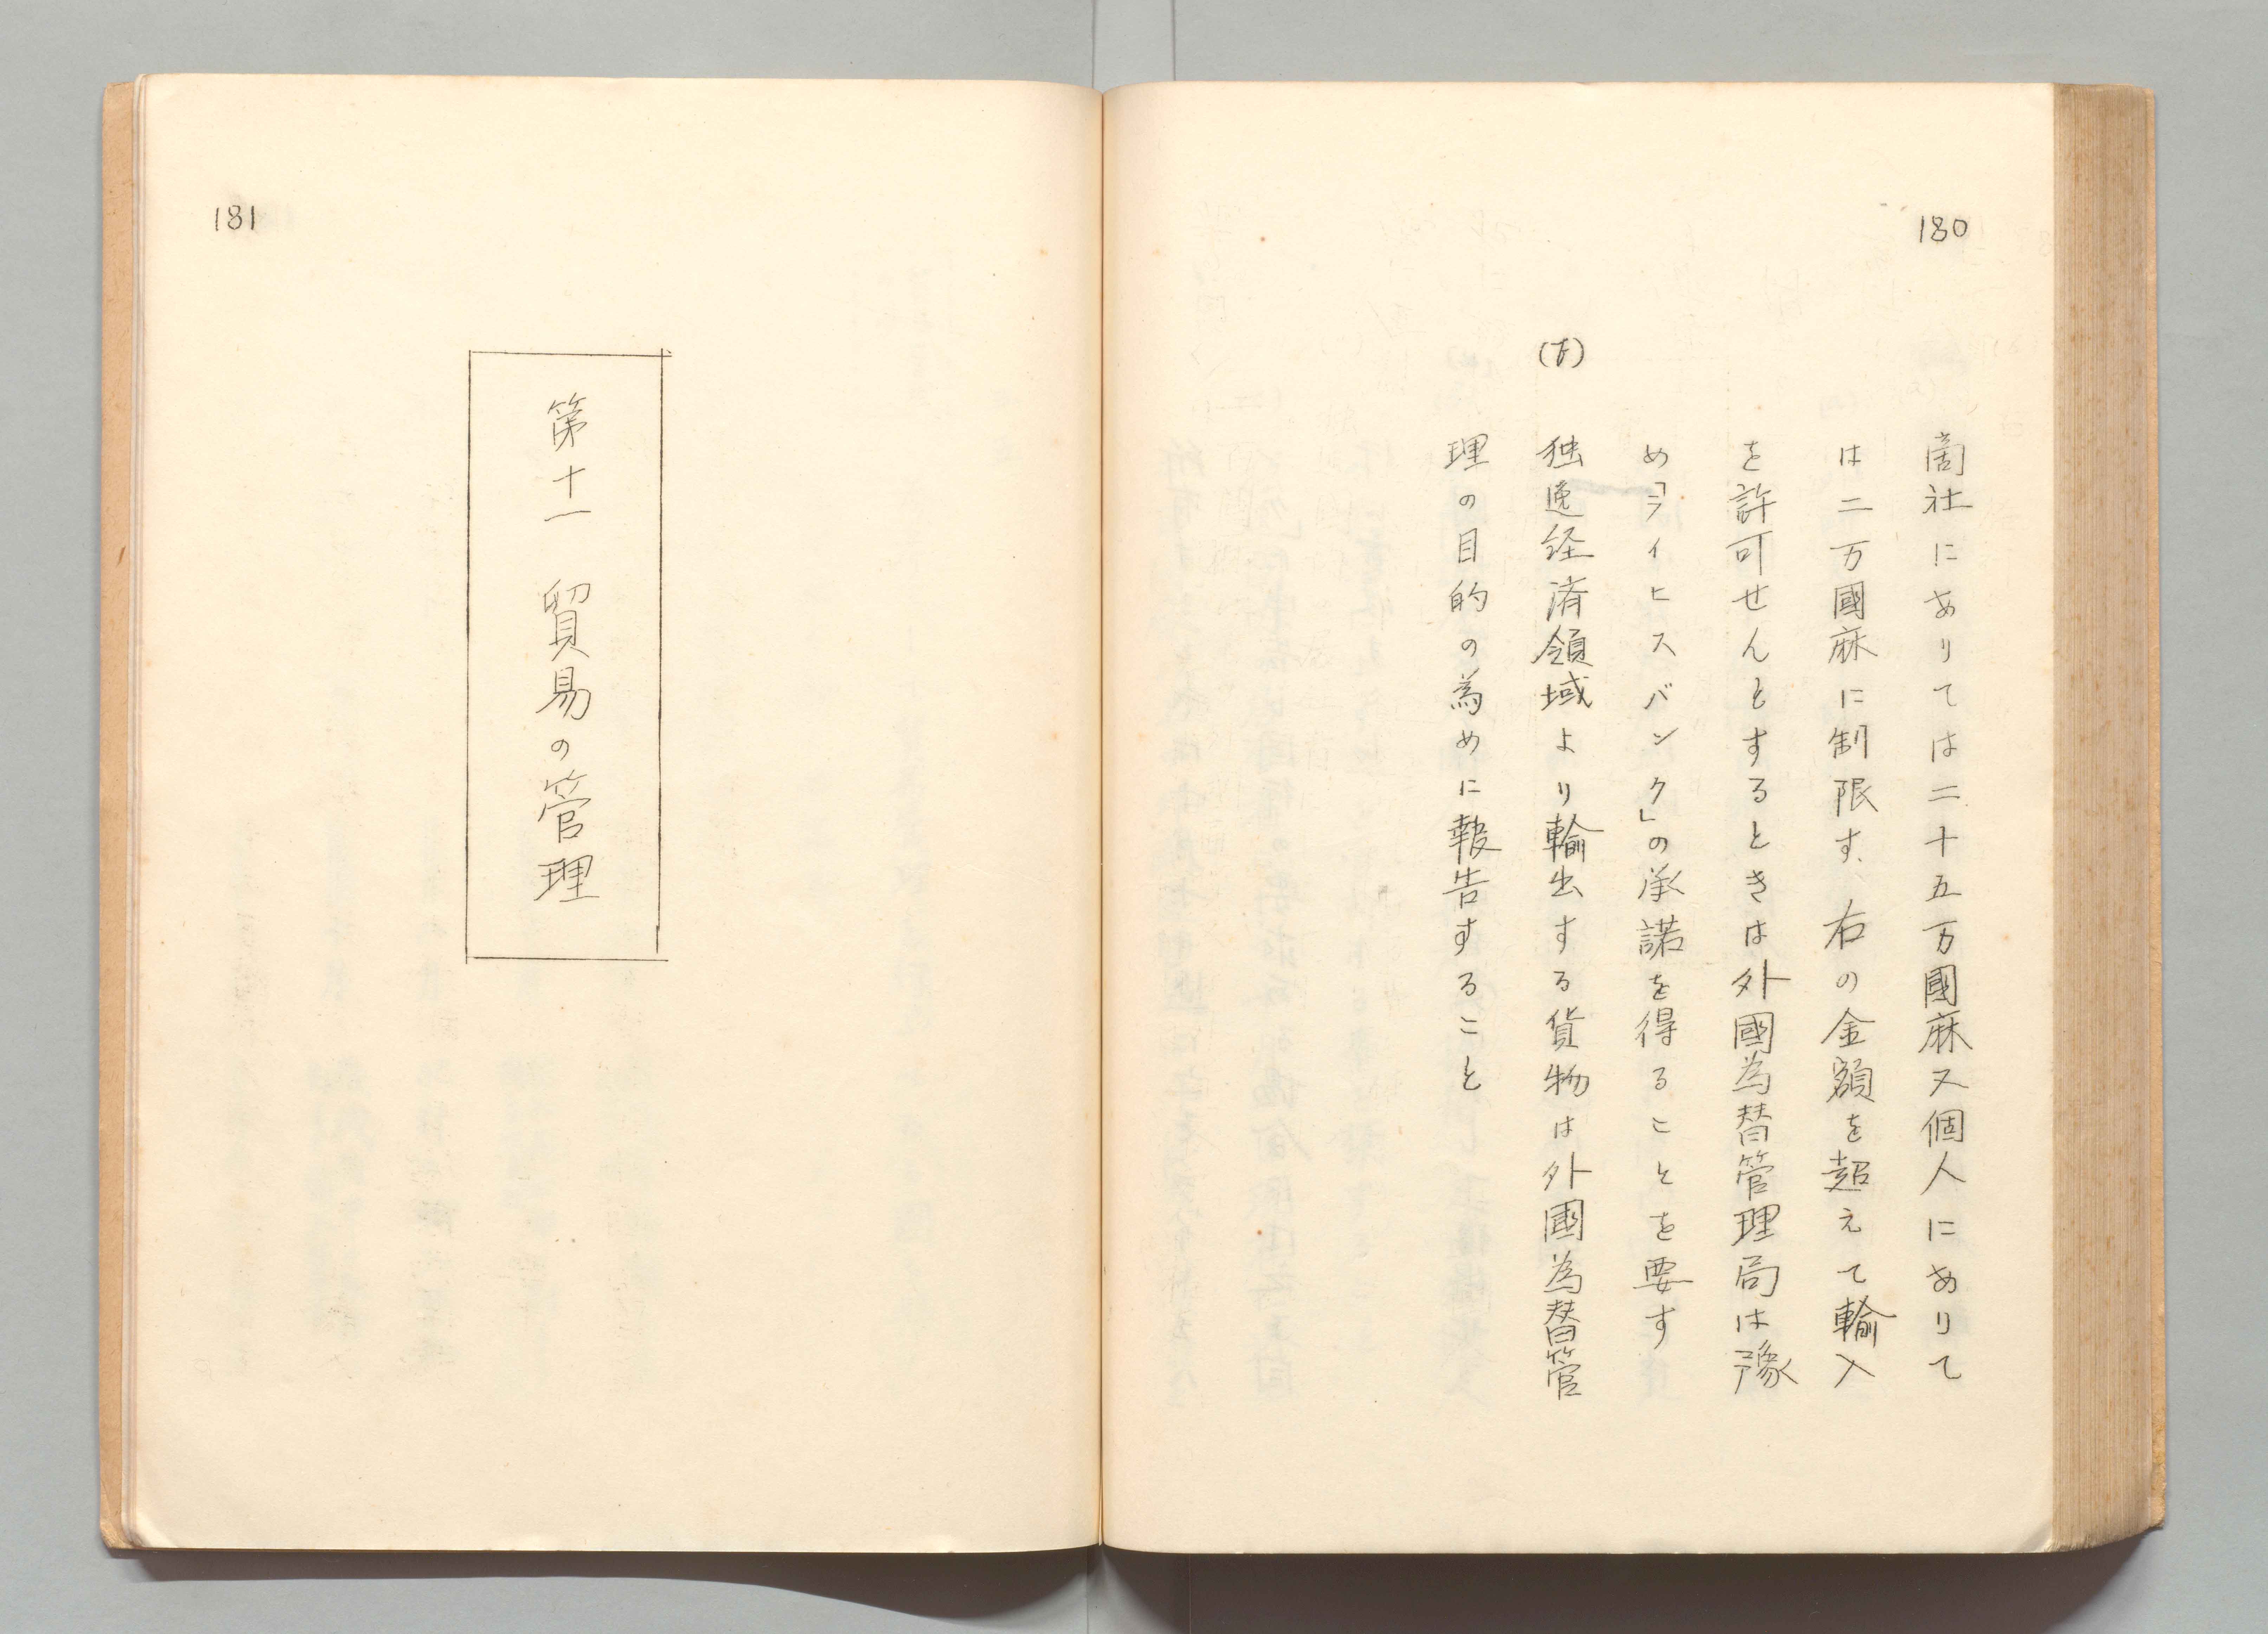 180
商社にありては二十五万國麻又個人にありて
は二万國麻に制限す、右の金額を超えて輸入
を許可せんとするときは外國為替管理局は豫
め「ライヒスバンク」の承諾を得ることを要す
独逸経済領域より輸出する貨物は外國為替管
理の目的の為めに報告すること
181
第十一 貿易の管理